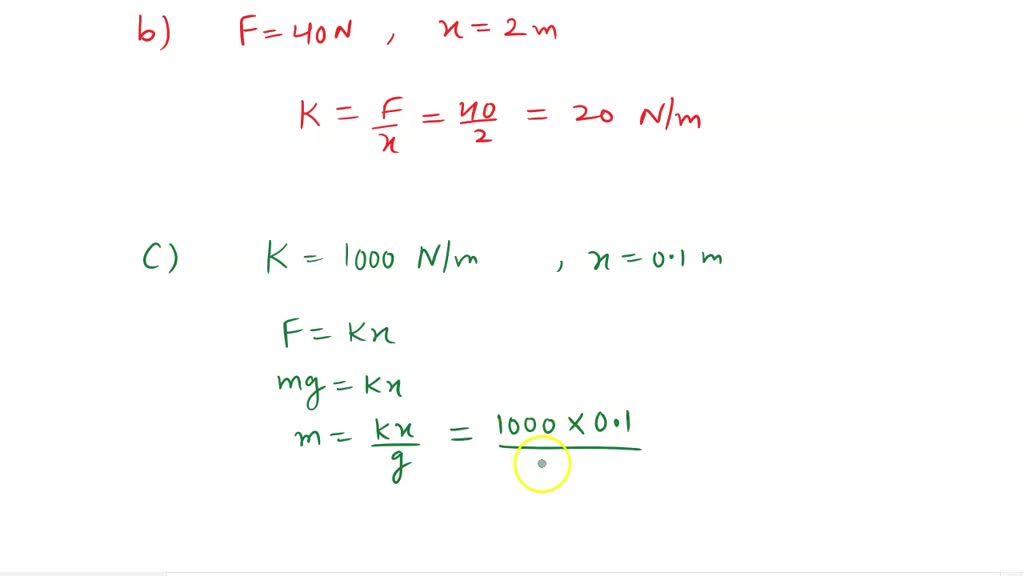 b) F = 40 N , x = 2 m
K = F/x = 40/2 = 20 N/m
C) K = 1000 N/m , x = 0.1 m
F = Kx
mg = Kx
m = Kx/g = 1000 × 0.1